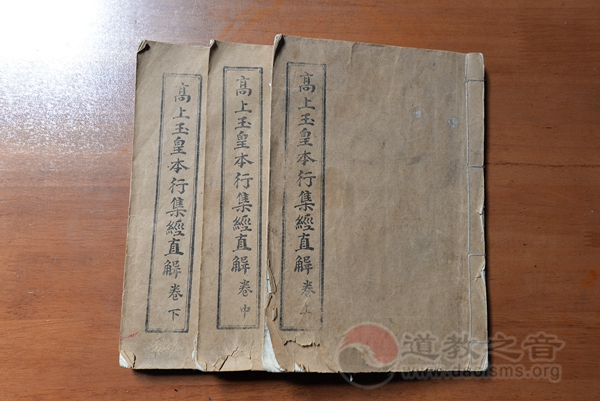 高上玉皇本行集經直解 卷下
高上玉皇本行集經直解 卷中
高上玉皇本行集經直解 卷上
道教之音
www.daoisms.org